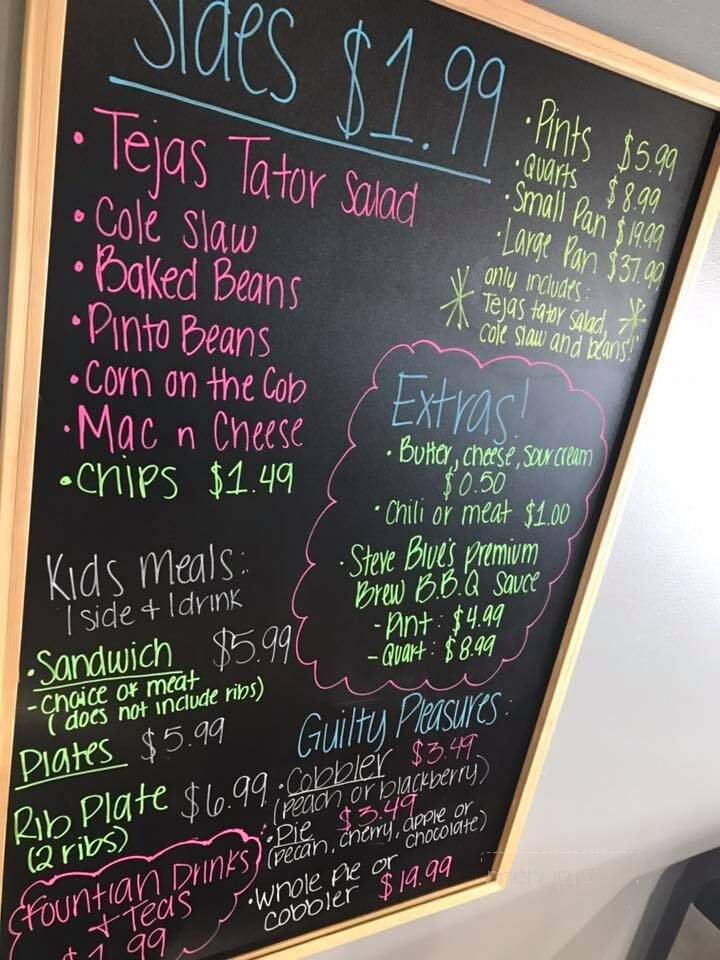 Sides $1.99
• Tejas Tator Salad
• Cole Slaw
• Baked Beans
• Pinto Beans
• Corn on the Cob
• Mac n Cheese
• Chips $1.49
• Pints $5.99
• Quarts $8.99
• Small Pan $19.99
• Large Pan $37.99
only includes:
Tejas tator salad,
cole slaw and beans!
Extras!
• Butter, cheese, sour cream
$0.50
• Chili or meat $1.00
• Steve Blue's premium
Brew B.B.Q Sauce
- Pint: $4.99
- Quart: $8.99
Kids Meals:
1 side + 1 drink
• Sandwich $5.99
- choice of meat
(does not include ribs)
Plates $5.99
Rib Plate $6.99
(2 ribs)
Fountian Drinks
+ Teas
$1.99
Guilty Pleasures:
• Cobbler $3.49
(peach or blackberry)
• Pie $3.49
(pecan, cherry, apple or
chocolate)
• Whole Pie or
cobbler $19.99